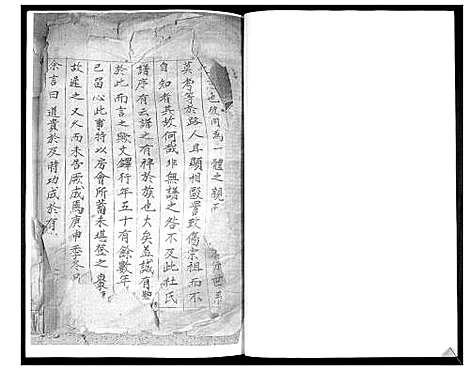 也彼同為一體之親不
莫考等於路人耳顯相毆詈致傷宗祖而不
自知者其故何哉非無譜之咎不及此杜氏
譜序有云譜之有裨於族也大矣益誠有
於此而言之歟文鐸行年五十有餘數年
已留心此事特以房會所蓄未堪登之
故遲之又久而未告厥成焉庚申季冬
余言曰道貴於及時功成於有